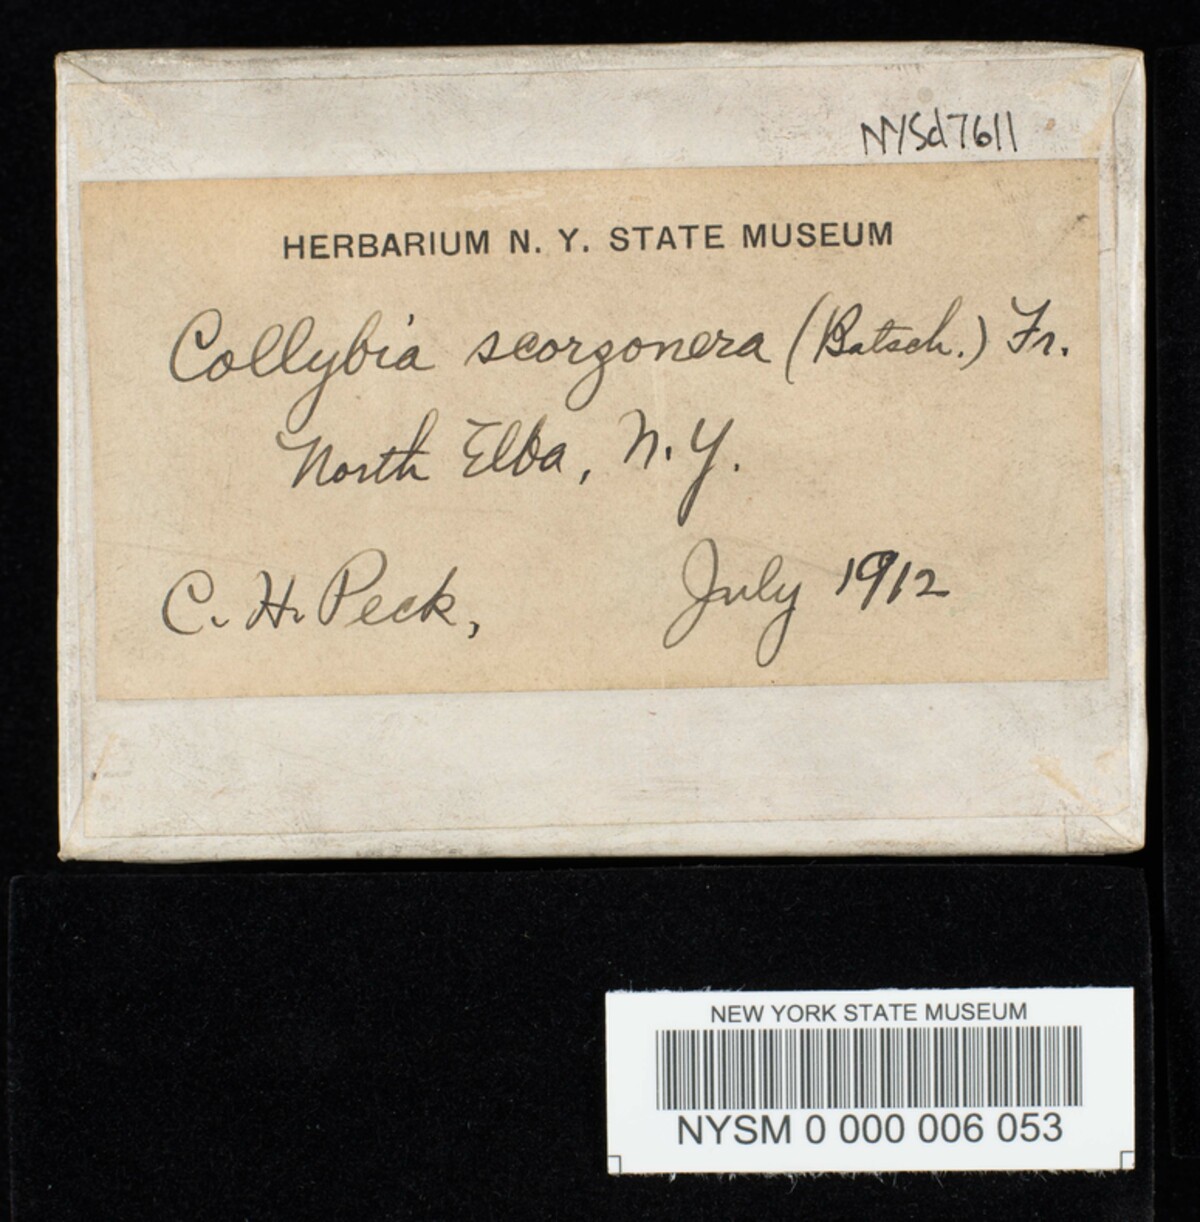 NYSd7611
HERBARIUM N. Y. STATE MUSEUM
Collybia scorzonera (Batsch.) Fr.
North Elba, N.Y.
C. H. Peck, July 1912
NEW YORK STATE MUSEUM
NYSM 0 000 006 053